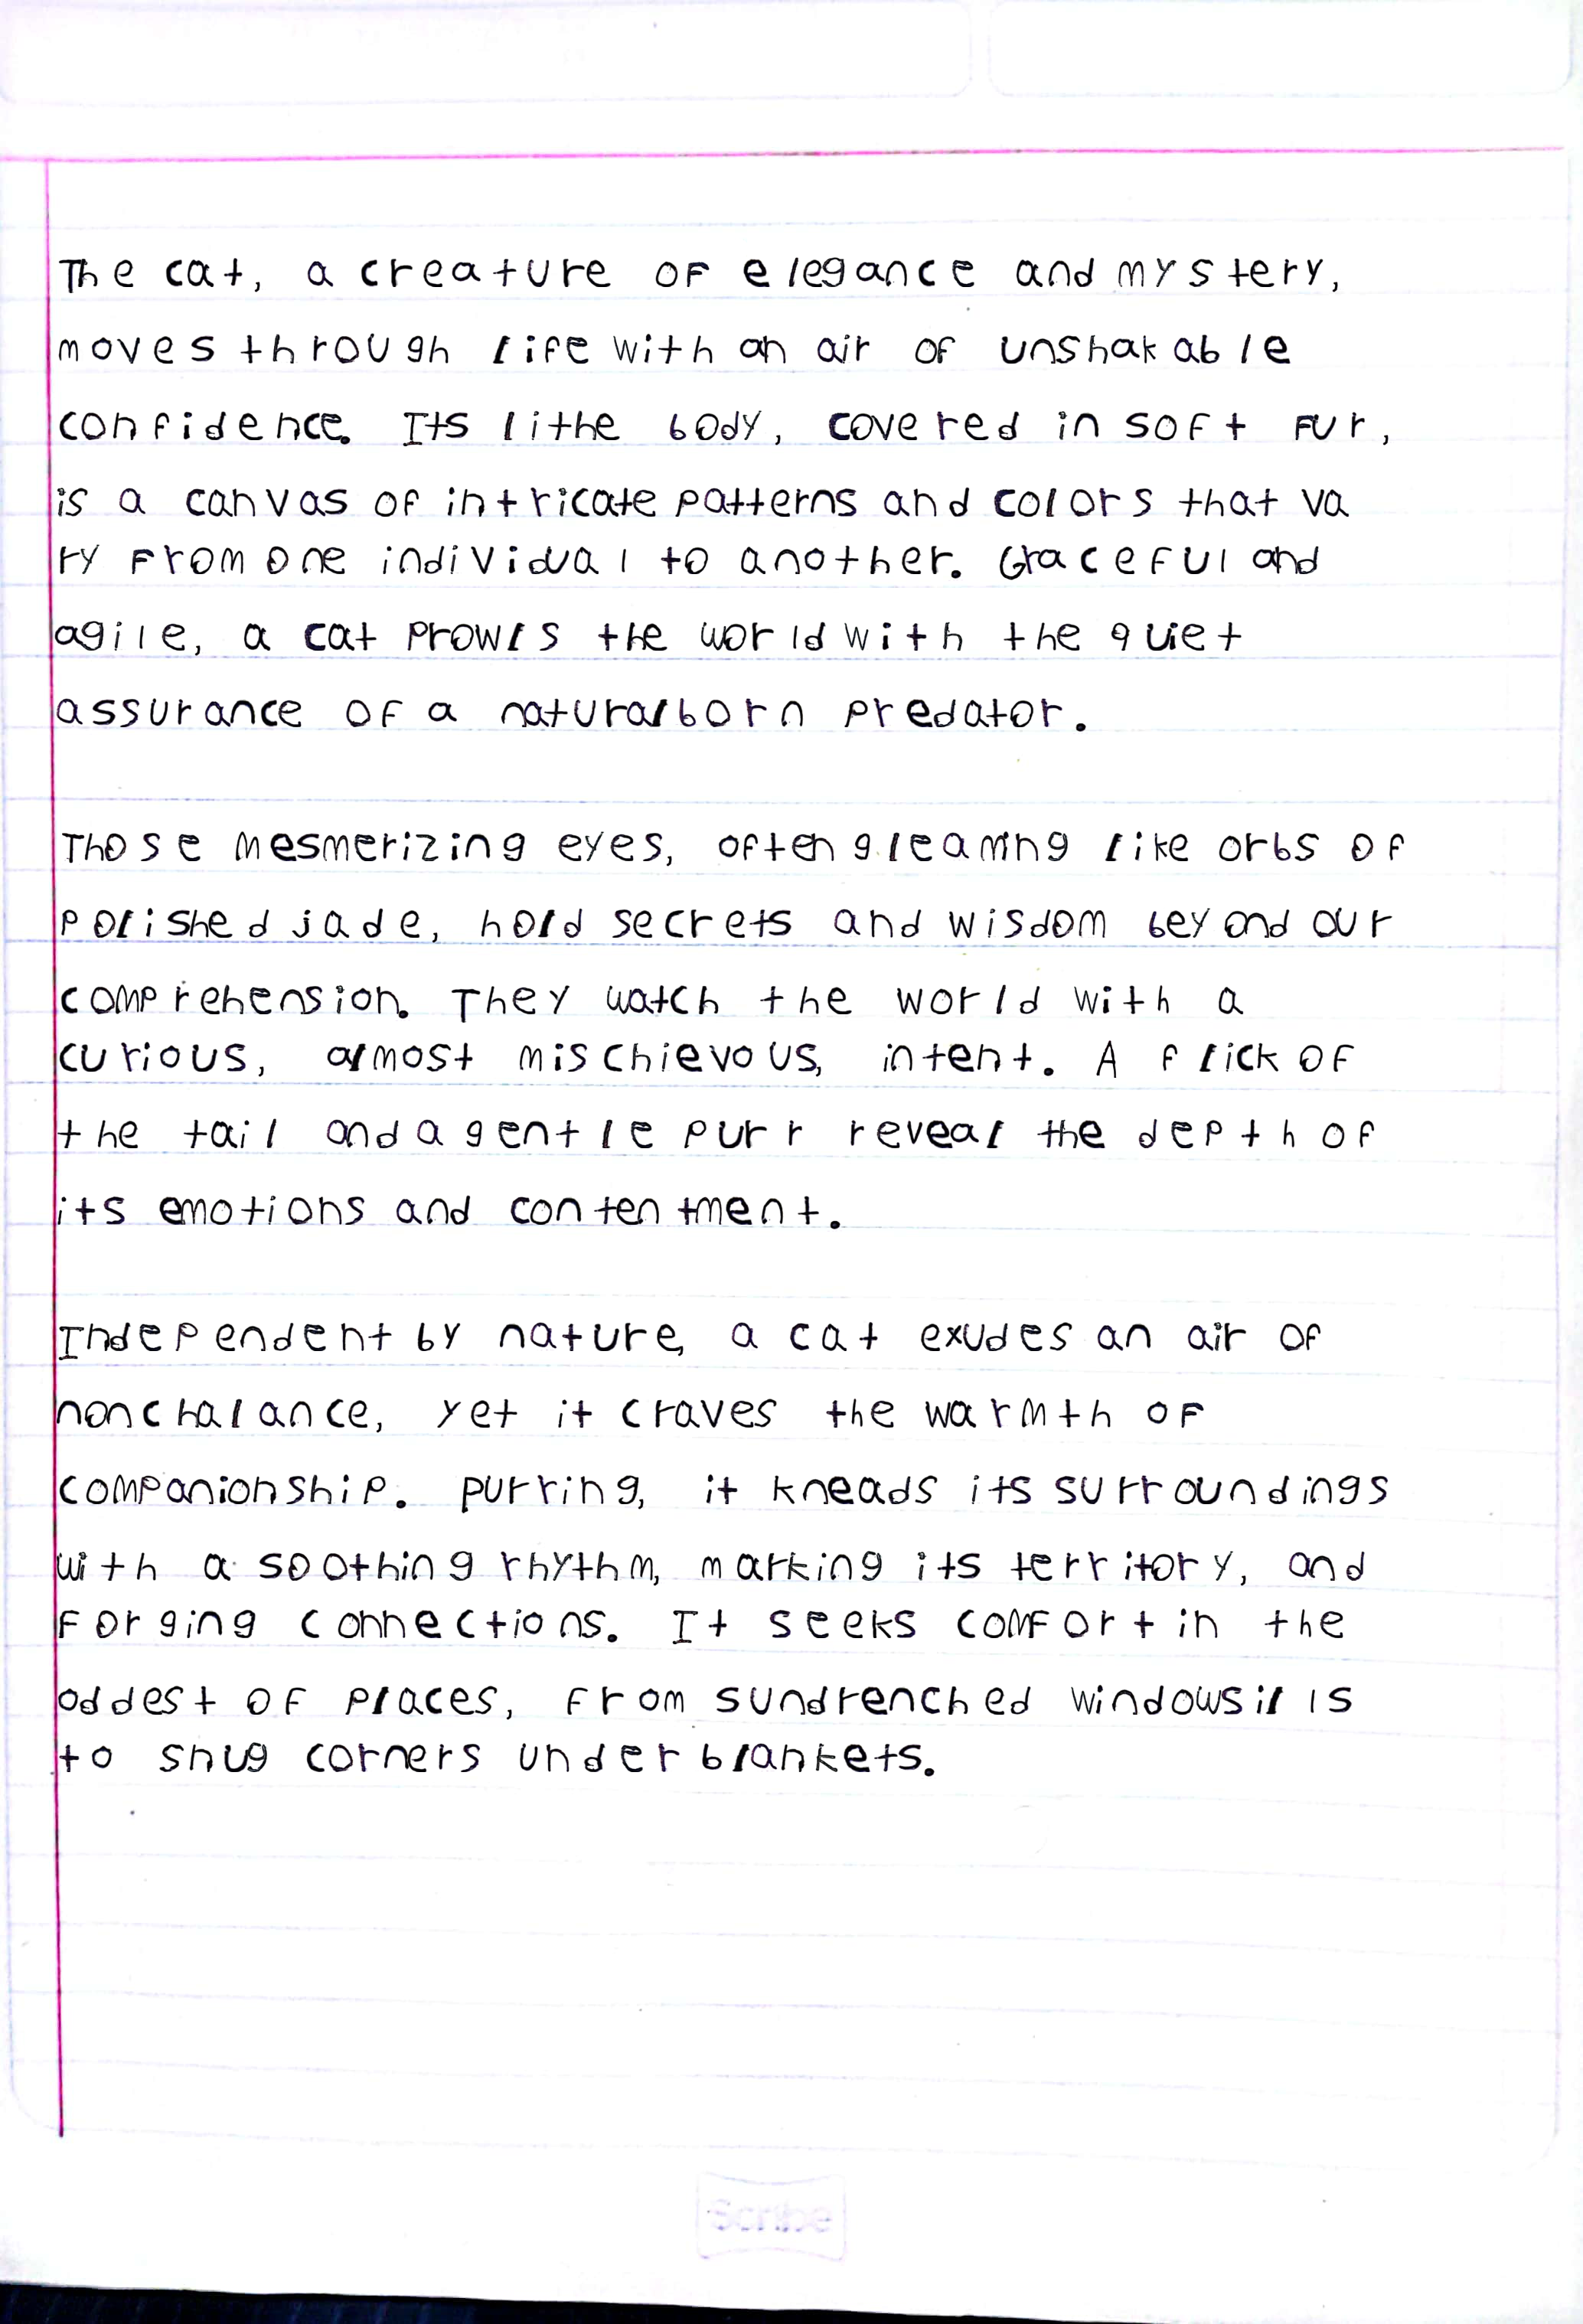 The cat, a creature of elegance and mystery,
moves through life with an air of unshakable
confidence. Its lithe body, covered in soft fur,
is a canvas of intricate patterns and colors that va
ry from one individual to another. Graceful and
agile, a cat prowls the world with the quiet
assurance of a naturalborn predator.
Those mesmerizing eyes, often gleaming like orbs of
polished jade, hold secrets and wisdom beyond our
comprehension. They watch the world with a
curious, almost mischievous, intent. A flick of
the tail and a gentle purr reveal the depth of
its emotions and contentment.
Independent by nature, a cat exudes an air of
nonchalance, yet it craves the warmth of
companionship. purring, it kneads its surroundings
with a soothing rhythm, marking its territory, and
forging connections. It seeks comfort in the
oddest of places, from sundrenched windowsills
to snug corners under blankets.
Scribe